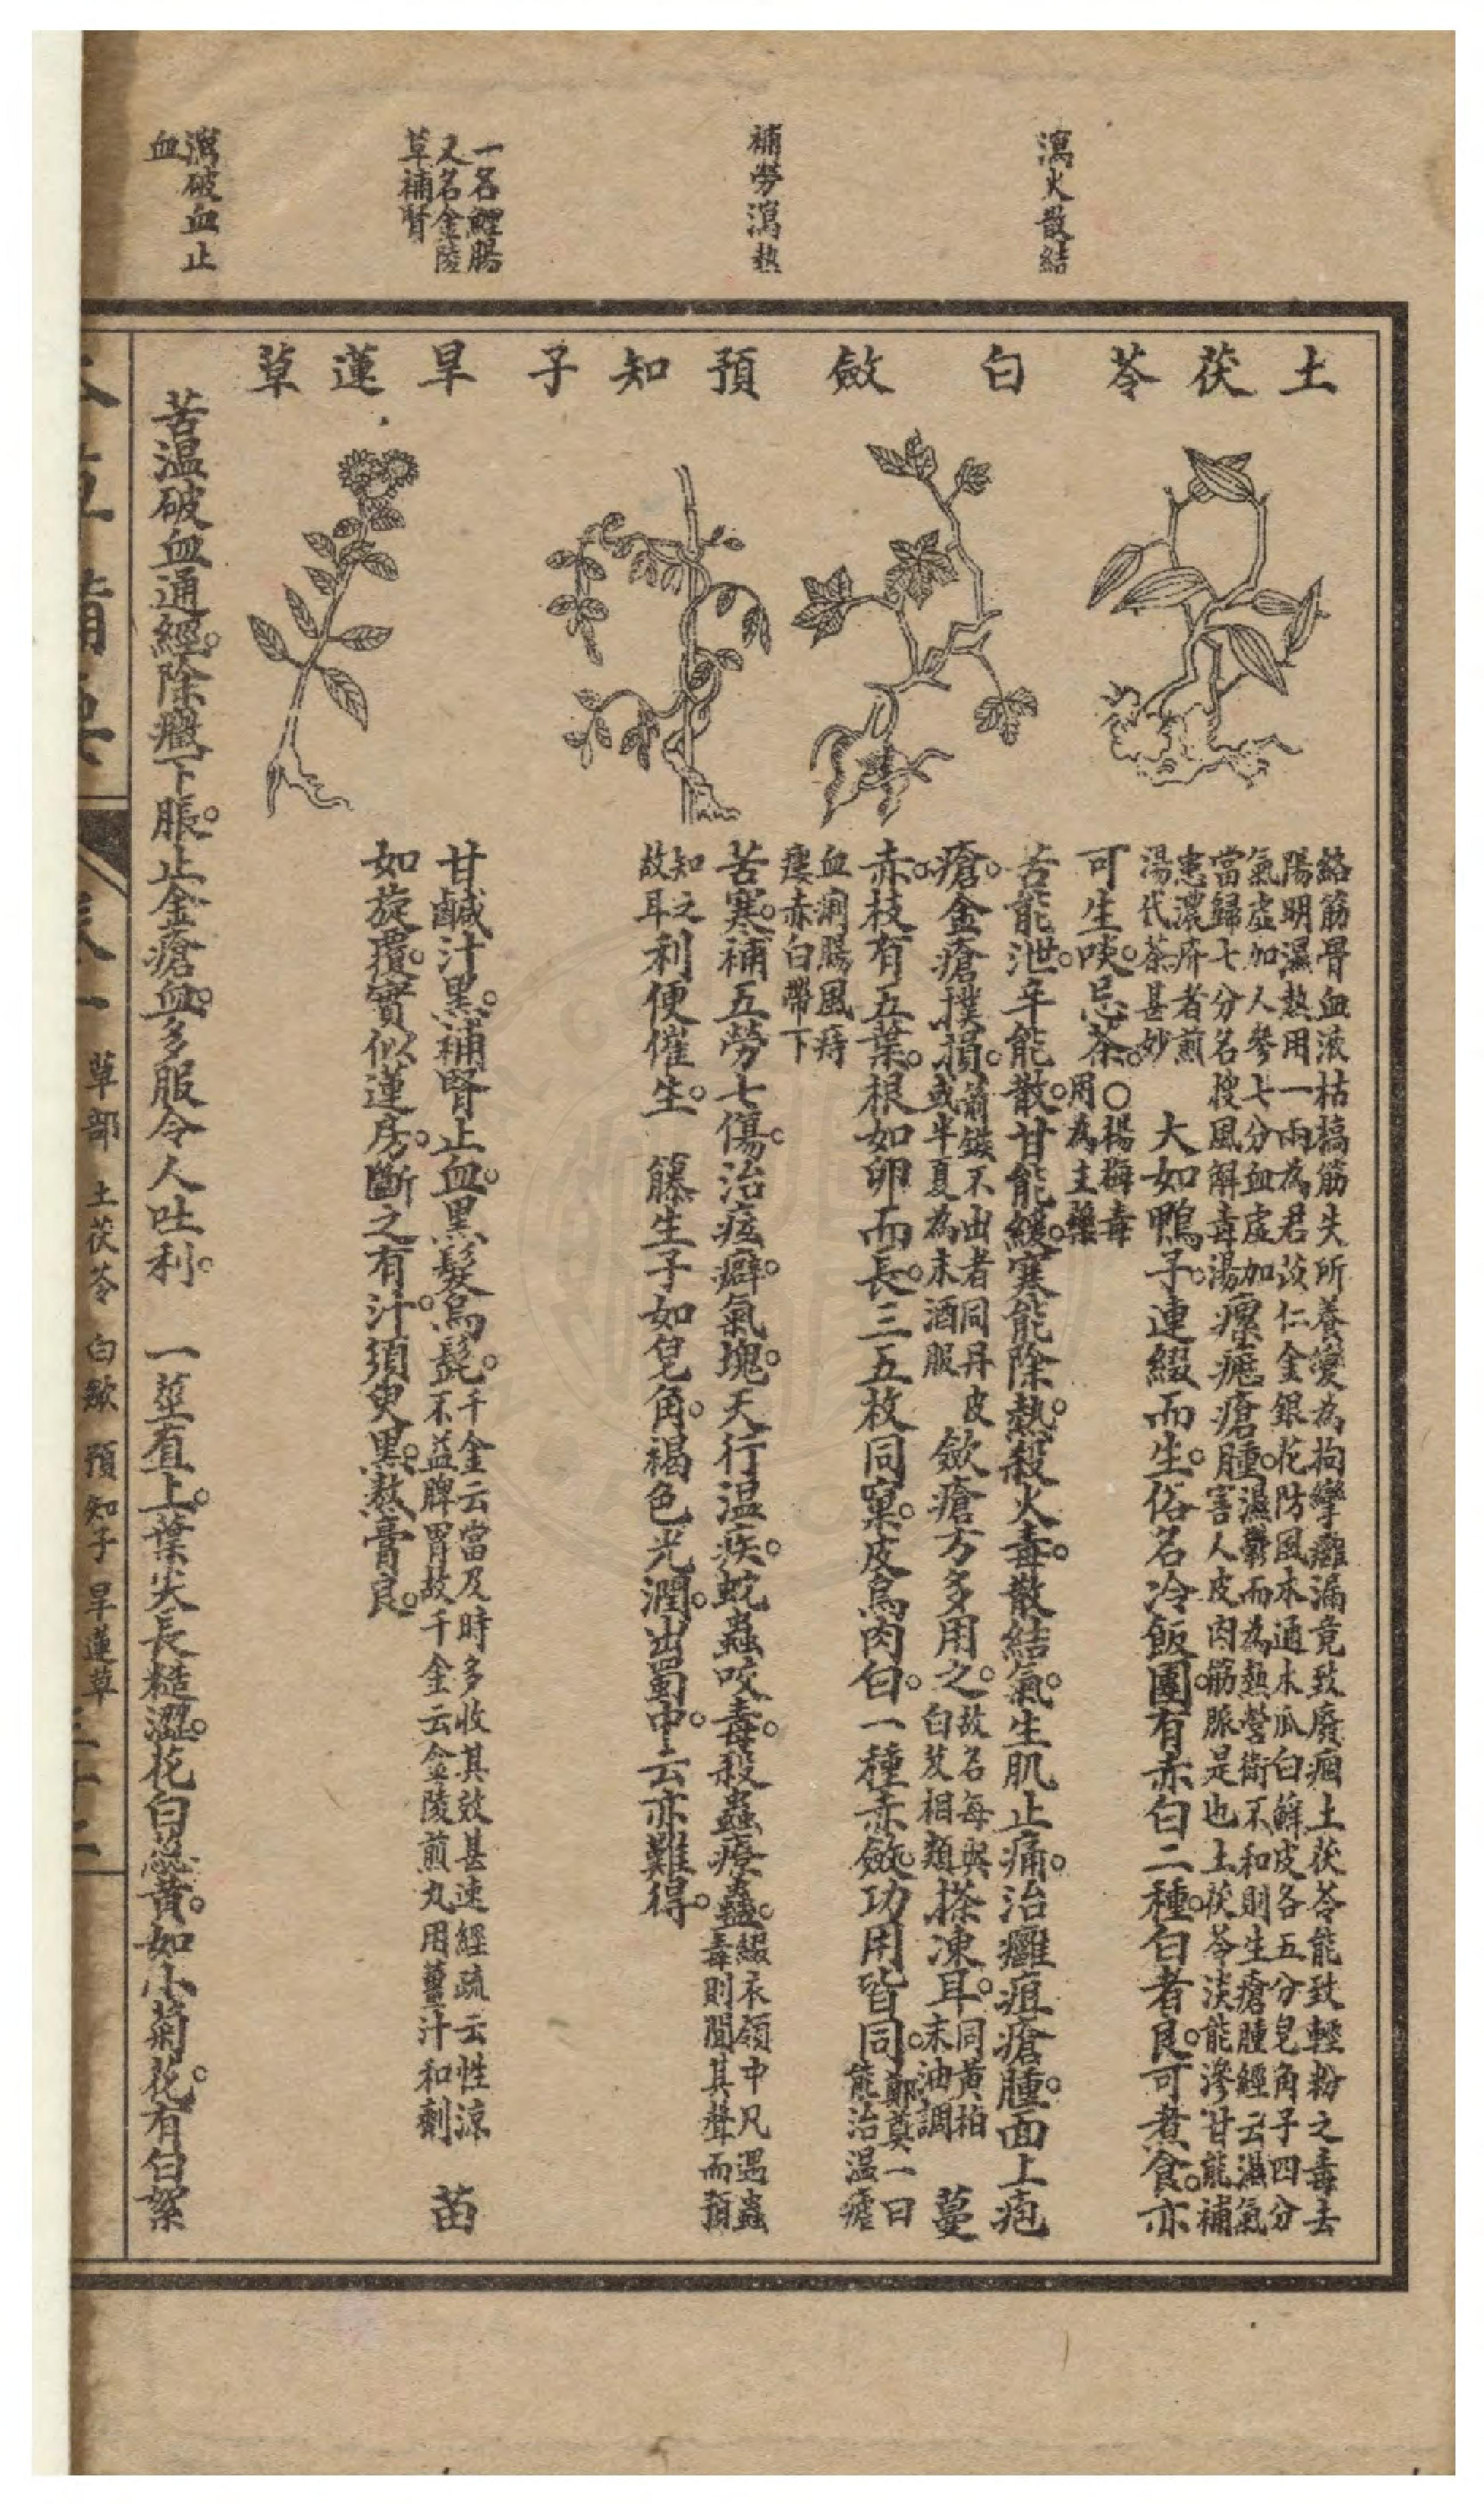 瀉火散結
補勞瀉熱
一名鱧腸
又名金陵
草補腎
瀉破血止
血
土茯苓
白斂
預知子
旱蓮草
絡筋骨血液枯槁筋失所養變為拘攣癰漏竟致廢痼土茯苓能致輕粉之毒去
陽明濕熱用一兩為君苡仁金銀花防風木通木瓜白鮮皮各五分皂角子四分
氣虛加人參七分血虛加
當歸七分名搜風解毒湯
瘰癧瘡腫。
濕鬱而為熱營衛不和則生瘡腫經云濕氣
害人皮肉筋脈是也土茯苓淡能滲甘能補
患濃疥者煎
湯代茶甚妙
大如鴨子。連綴而生。俗名冷飯團。有赤白二種。白者良。可煮食。亦
可生啖。忌茶。○
楊梅毒
用為主藥
苦能泄。辛能散。甘能緩。寒能除熱。殺火毒。散結氣。生肌止痛。治癰疽瘡腫。面上皰
瘡。金瘡撲損。
箭鏃不出者同丹皮
或半夏為末酒服
斂瘡方多用之。
故名每與
白芨相類
搽凍耳。
同黃柏
末油調
蔓
赤。枝有五葉。根如卵而長。三五枚同窠。皮烏肉白。一種赤斂。功用皆同。
鄭奠一曰
能治溫瘧
血痢腸風痔
瘻赤白帶下
苦寒。補五勞七傷。治痃癖。氣塊。天行溫疾。蛇蟲咬毒。殺蟲療蠱。
綴衣領中凡遇蟲
毒則聞其聲而預
知之
故耳
利便催生。　藤生子如皂角。褐色光潤。出蜀中。云亦難得。
甘鹹汁黑。補腎止血。黑髮烏髭。
千金云當及時多收其效甚速經疏云性涼
不益脾胃故千金云金陵煎丸用薑汁和劑
苗
如旋覆。實似蓮房。斷之有汁。須臾黑。熬膏良。
苦溫破血通經。除癥下脹。止金瘡血。多服令人吐利。　一莖直上。葉尖長糙澀。花白蕊黃。如小菊花。有白絮
草部　土茯苓　白斂　預知子　旱蓮草